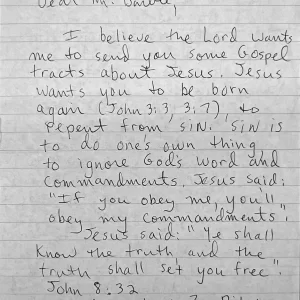 Dear Mr.
I believe the Lord wants
me to send you some Gospel
tracts about Jesus. Jesus
wants you to be born
again (John 3:3, 3:7), to
repent from sin. Sin is
to do one's own thing
to ignore God's word and
Commandments. Jesus said:
"If you obey me, you'll
obey my commandments".
Jesus said: "Ye shall
know the truth and the
truth shall set you free".
John 8:32